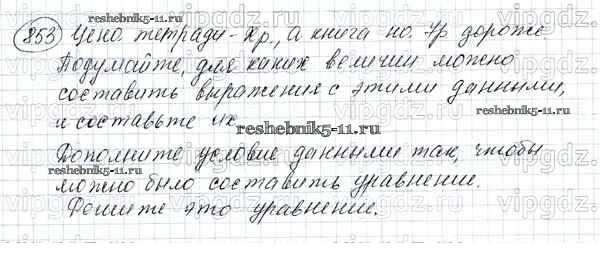 853 Цена тетради - Хр., а книга на 7р дороже
reshebnik5-11.ru
Подумайте, для каких величин можно
составить выражения с этими данными,
reshebnik5-11.ru
и составьте их.
reshebnik5-11.ru
Дополните условие данными так, чтобы
reshebnik5-11.ru
можно было составить уравнение.
Решите это уравнение.
reshebnik5-11.ru